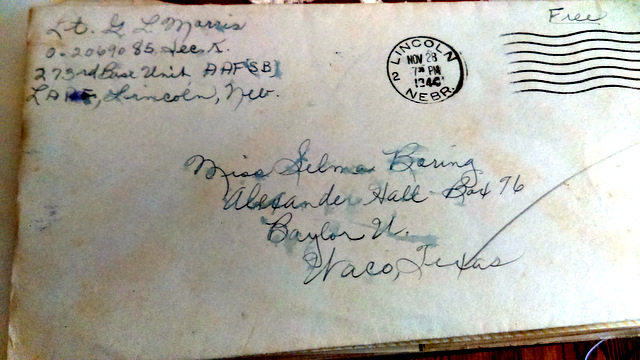 Lt. G L Morris
O-2069085, Sec K.
273rd Base Unit AAF (SB)
LAAF, Lincoln, Neb.
Free
LINCOLN
NOV 28
7 30 PM
194
2
NEBR.
Miss Selma Boring
Alexander Hall Box 76
Baylor U.
Waco, Texas